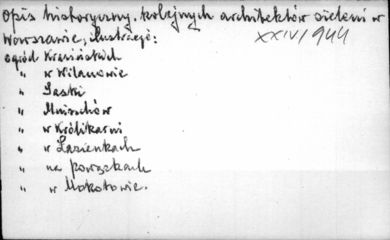 Opis historyczny kolejnych architektów zieleni w
Warszawie, ilustracje:
XXIV/944
ogród Krasińskich
" w Wilanowie
" Saski
" Mniszchów
" w Królikarni
" w Łazienkach
" na Powązkach
" w Mokotowie.